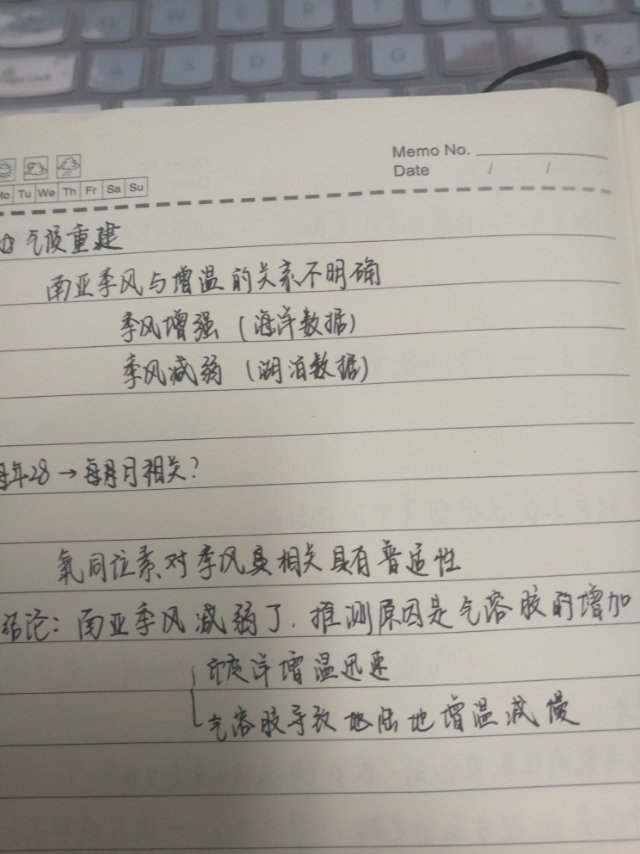 Memo No.
Date / /
Mo Tu We Th Fr Sa Su
气候重建
南亚季风与增温的关系不明确
季风增强（海洋数据）
季风减弱（湖泊数据）
年28 → 每月日相关？
氧同位素对季风具相关具有普适性
结论：南亚季风减弱了，推测原因是气溶胶的增加
印度洋增温迅速
气溶胶导致地陆地增温减慢